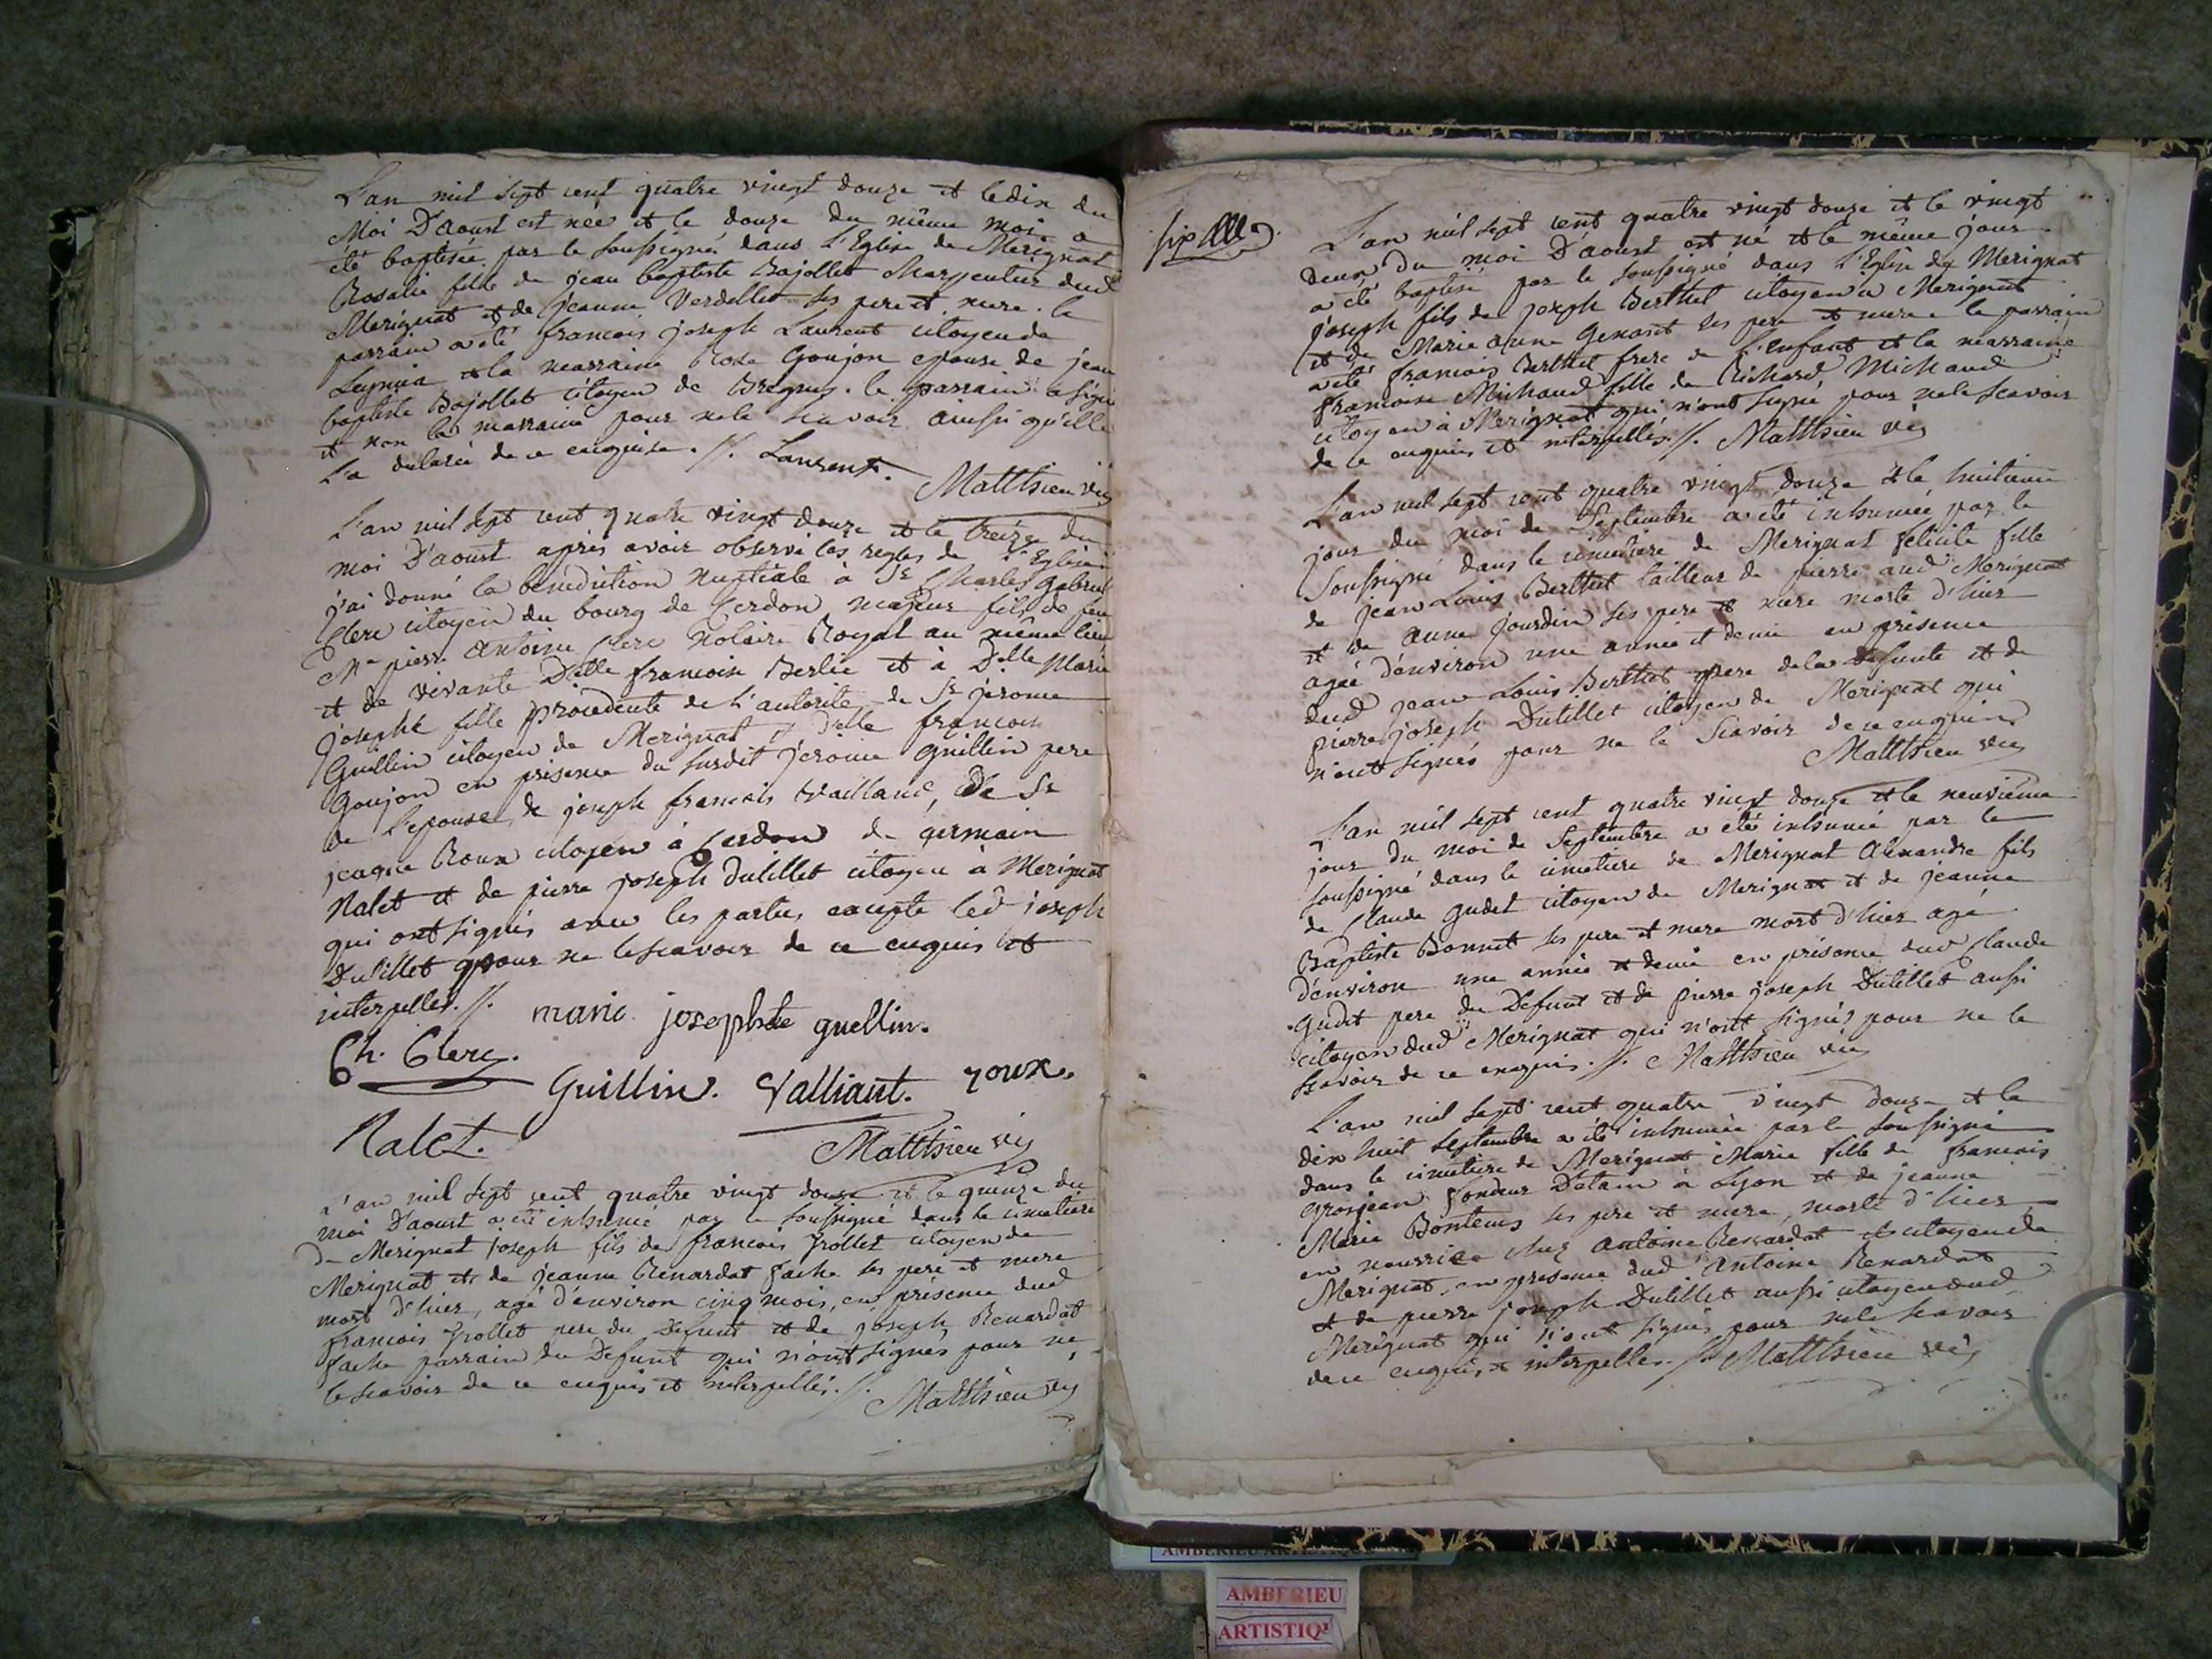 L'an mil sept cent quatre vingt douze et le dix du
Moi D'aoust est née et le douze du même mois a
été baptisée par le soussigné dans L'Eglise de Merignat
Rosalie fille de jean baptiste Bajollet Charpentier dud
Merignat et de jeanne Verdellet ses pere et mere. le
parrain a été francois joseph Laurent citoyen de
la marraine Rose Goujon epouse de jean
baptiste Bajollet citoyen de le parrain a signé
et non la marraine pour ne le scavoir ainsi qu'elle
L'a de ce enquise. //. Laurent.
Matthieu vic
L'an mil sept cent quatre vingt douze et le treize du
moi D'aoust après avoir observé les regles de L'Eglise
j'ai donné la benediction nuptiale à Sr Charles Gabriel
Clerc citoyen du bourg de Cerdon majeur fils de feu
Me pierre Antoine Clerc Notaire Royal au même lieu
et de vivante Dlle francoise Berlie et à Dlle Marie
josephe fille procedente de L'autorité de Sr jérome
Guillin citoyen de Merignat et Dlle francoise
Goujon en présence du susdit jérome Guillin pere
de L'epouse, de joseph francois Vailland, de Sr
jeaque Roux citoyen à Cerdon de germain
Nalet et de pierre joseph Dutillet citoyen à Merignat
qui ont signés avec les parties excepte led joseph
Dutillet pour ne le scavoir de ce enquis et
interpellés. //. marie josephte guellin.
Ch. Clerc.
Guillin. Valliant. roux.
Nalet.
Matthieu vic
L'an mil sept cent quatre vingt douze et le quinze du
moi D'aoust a été inhumé par le soussigné dans le cimetiere
de Merignat joseph fils de francois Jrollet citoyen de
Merignat et de jeanne Renardat fache ses pere et mere
mort d'hier, agé d'environ cinq mois, en présence dud
francois Jrollet pere du Defunt et de joseph Renardat
fache parrain du Defunt qui n'ont signés pour ne
le scavoir de ce enquis et interpellés. //. Matthieu vic
L'an mil sept cent quatre vingt douze et le vingt
deux du moi D'aoust est né et le même jour
a été baptisé par le soussigné dans L'Eglise de Merignat
joseph fils de joseph Berthet citoyen a Merignat
et de Marie anne Genost ses pere et mere. le parrain
a été francois Berthet frere de L'enfant et la marraine
francoise Michaud fille de Richard Michaud
citoyen à Merignat qui n'ont signé pour ne le scavoir
de ce enquis et interpellés. //. Matthieu vic
L'an mil sept cent quatre vingt douze et le huitieme
jour du moi de Septembre a été inhumée par le
Soussigné dans le cimetiere de Merignat felicite fille
de jean Louis Berthet tailleur de pierre aud Merignat
et de anne jourdin ses pere et mere morte d'hier
agée d'environ une année et demie en présence
dud jean Louis Berthet pere de la defunte et de
pierre joseph Dutillet citoyen de Merignat qui
n'ont signés pour ne le scavoir de ce enquis
Matthieu vic
L'an mil sept cent quatre vingt douze et le neuvieme
jour du moi de Septembre a été inhumé par le
soussigné dans le cimetiere de Merignat Alexandre fils
de Claude Gudet citoyen de Merignat et de jeanne
Baptiste Bonnet ses pere et mere mort d'hier agé
d'environ une année et demie en présence dud Claude
Gudet pere du Defunt et de pierre joseph Dutillet aussi
citoyen dud Merignat qui n'ont signés pour ne le
scavoir de ce enquis. //. Matthieu vic
L'an mil sept cent quatre vingt douze et le
dix huit septembre a été inhumée par le soussigné
dans le cimetiere de Merignat Marie fille de francois
grosjean fondeur D'etain à Lyon et de jeanne
Marie Bontems ses pere et mere, morte d'hier
en nourrice chez antoine Renardat citoyen de
Merignat, en presence dud Antoine Renardat
et de pierre joseph Dutillet aussi citoyen dud
Merignat qui n'ont signés pour ne le scavoir
de ce enquis et interpellés. //. Matthieu vic
AMBERIEU ARTISTIQUE
AMBERIEU
ARTISTIQ